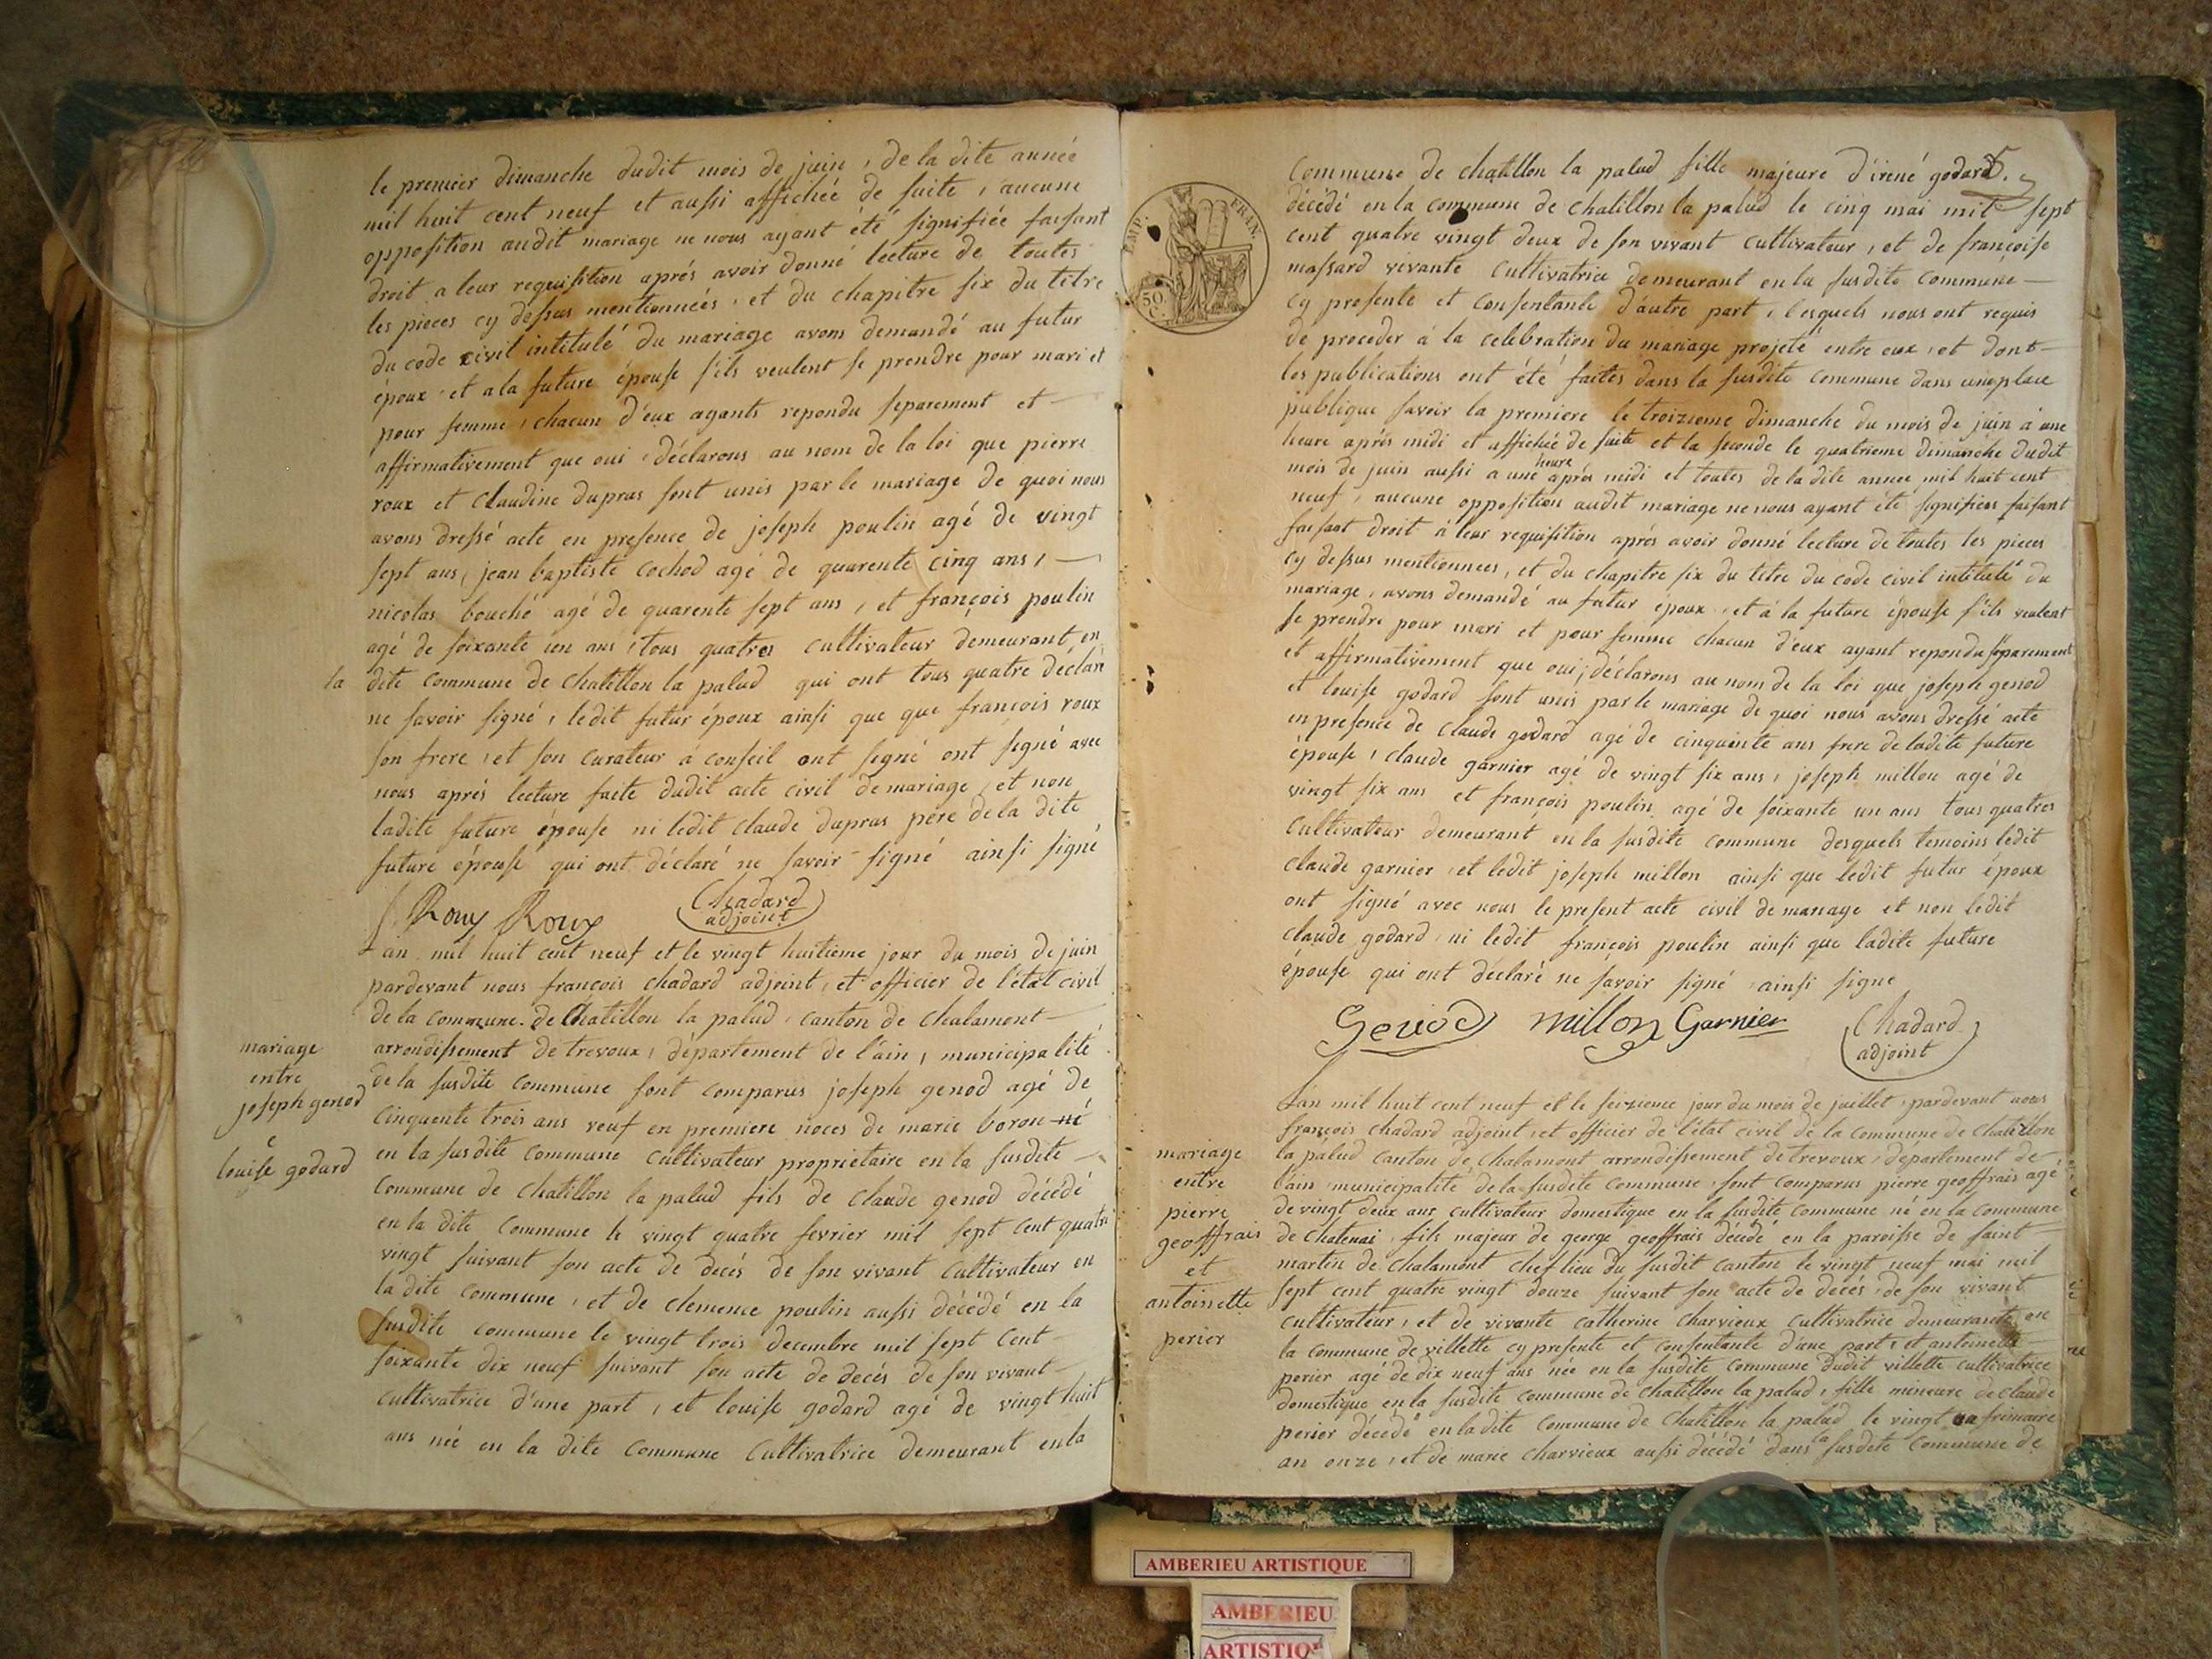 le premier dimanche dudit mois de juin, de la dite année
mil huit cent neuf et aussi affichée de suite, aucune
opposition audit mariage ne nous ayant été signifiée faisant
droit a leur requisition aprés avoir donné lecture de toutes
les pieces cy dessus mentionnées, et du chapitre six du titre
du code civil intitulé du mariage avons demandé au futur
époux et a la future épouse s'ils veulent se prendre pour mari et
pour femme, chacun d'eux ayants repondu separement et
affirmativement que oui, déclarons au nom de la loi que pierre
roux et claudine dupras sont unis par le mariage de quoi nous
avons dressé acte en presence de joseph poulin agé de vingt
sept ans, jean baptiste cochod agé de quarente cinq ans,
nicolas bouché agé de quarente sept ans, et françois poulin
agé de soixante un ans, tous quatres cultivateur demeurant en
la dite commune de chatillon la palud qui ont tous quatre déclaré
ne savoir signé, ledit futur époux ainsi que que francois roux
son frere, et son curateur á conseil ont signé ont signé avec
nous aprés lecture faite dudit acte civil de mariage, et non
ladite future épouse ni ledit claude dupras pére de la dite
future épouse qui ont déclaré ne savoir signé ainsi signé
f. Roux Roux Chadard
adjoint
L'an mil huit cent neuf et le vingt huitieme jour du mois de juin
pardevant nous françois chadard adjoint, et officier de l'état civil
de la commune de Chatillon la palud, canton de chalamont
arrondissement de trevoux, département de l'ain, municipalité
de la susdite commune sont comparus joseph genod agé de
cinquente trois ans veuf en premiere noces de marie boron né
en la susdite commune cultivateur proprietaire en la susdite
commune de chatillon la palud fils de claude genod décédé
en la dite commune le vingt quatre fevrier mil sept cent quatre
vingt suivant son acte de decés de son vivant cultivateur en
la dite commune, et de clemence poulin aussi décédé en la
susdite commune le vingt trois decembre mil sept cent
soixante dix neuf suivant son acte de decés de son vivant
cultivatrice d'une part, et louise godard agé de vingt huit
ans née en la dite commune cultivatrice demeurant en la
mariage
entre
joseph genod
e
louise godard
5.
commune de chatillon la palud fille majeure d'irené godard
décédé en la commune de chatillon la palud le cinq mai mil sept
cent quatre vingt deux de son vivant cultivateur, et de françoise
massard vivante cultivatrice demeurant en la susdite commune
cy presente et consentante d'autre part, lesquels nous ont requis
de proceder á la celebration du mariage projeté entre eux, et dont
les publications ont été faites dans la susdite commune dans une place
publique savoir la premiere le troizieme dimanche du mois de juin á une
heure aprés midi et affichée de suite et la seconde le quatrieme dimanche dudit
mois de juin aussi a une heure aprés midi et toutes de la dite année mil huit cent
neuf, aucune opposition audit mariage ne nous ayant été signifiées faisant
faisant droit á leur requisition aprés avoir donné lecture de toutes les pieces
cy dessus mentionnees, et du chapitre six du titre du code civil intitulé du
mariage, avons demandé au futur époux, et á la future épouse s'ils veulent
se prendre pour mari et pour femme chacun d'eux ayant repondu séparement
et affirmativement que oui, déclarons au nom de la loi que joseph genod
et louise godard sont unis par le mariage de quoi nous avons dressé acte
en presence de claude godard agé de cinquante ans frere de ladite future
épouse, claude garnier agé de vingt six ans, joseph millon agé de
vingt six ans et françois poulin agé de soixante un ans tous quatres
cultivateur demeurant en la susdite commune desquels temoins ledit
claude garnier, et ledit joseph millon ainsi que ledit futur époux
ont signé avec nous le present acte civil de mariage et non ledit
claude godard, ni ledit françois poulin ainsi que ladite future
épouse qui ont déclaré ne savoir signé, ainsi signe
Genod millon Garnier Chadard
adjoint
L'an mil huit cent neuf et le seizieme jour du mois de juillet, pardevant nous
françois chadard adjoint, et officier de l'état civil de la commune de chatillon
la palud canton de chalamont arrondissement de trevoux, departement de
l'ain municipalité de la susdite commune, sont comparus pierre geoffrais agé
de vingt deux ans cultivateur domestique en la susdite commune né en la commune
de chatenai, fils majeur de george geoffrais décédé en la paroisse de saint
martin de chalamont chef lieu du susdit canton le vingt neuf mai mil
sept cent quatre vingt douze suivant son acte de decés, de son vivant
cultivateur, et de vivante catherine charvieux cultivatrice demeurante en
la commune de villette cy presente et consentante d'une part, et antoinette
perier agé de dix neuf ans née en la susdite commune dudit villette cultivatrice
domestique en la susdite commune de chatillon la palud, fille mineure de claude
perier décédé en la dite commune de chatillon la palud le vingt un frimaire
an onze, et de marie charvieux aussi décédé dans la susdite commune de
mariage
entre
pierre
geoffrais
et
antoinette
perier
EMP. FRAN.
50
C.
AMBERIEU ARTISTIQUE
AMBERIEU